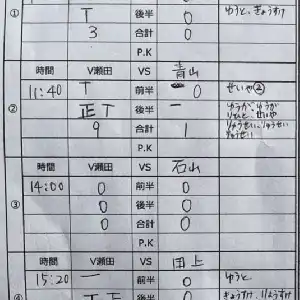 ① T 後半 0 ゆうと、きょうすけ
3 合計 0
P.K
時間 V瀬田 VS 青山
11:40 T 前半 0 せいや②
② 正T 後半 一 ゆうが、ゆうが
9 合計 1
りゅうせい、りゅうせい
P.K
時間 V瀬田 VS 石山
14:00 0 前半 0
③ 0 後半 0
0 合計 0
P.K
時間 V瀬田 VS 田上
15:20 一 前半 0 ゆうと
④ 後半 0 きょうすけ、りょうすけ